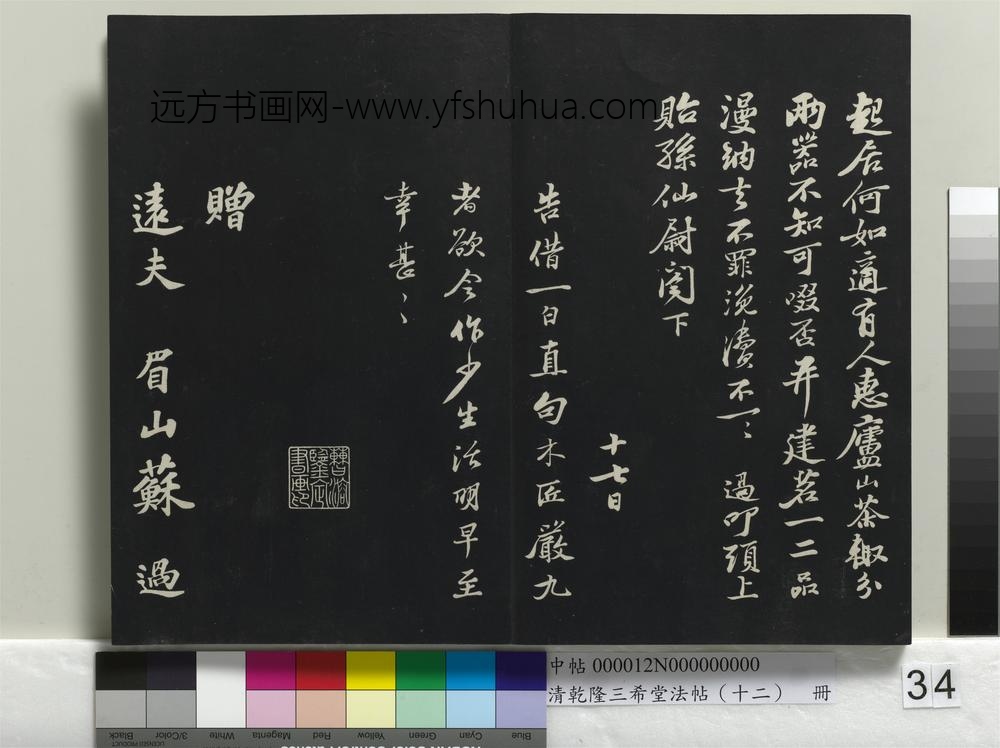 起居何如適有人惠廬山茶輙分
兩器不知可啜否并建茗一二品
漫納去不罪浼瀆不一〻 過叩頭上
貽孫仙尉閣下
十七日
告借一白直勾木匠嚴九
者欲令作少生活明早至
幸甚〻
贈
遠夫 眉山蘇 過
远方书画网-www.yfshuhua.com
中帖 000012N000000000
清乾隆三希堂法帖（十二） 冊
34
Black
3/Color
White
Magenta
Red
Yellow
Green
Cyan
Blue